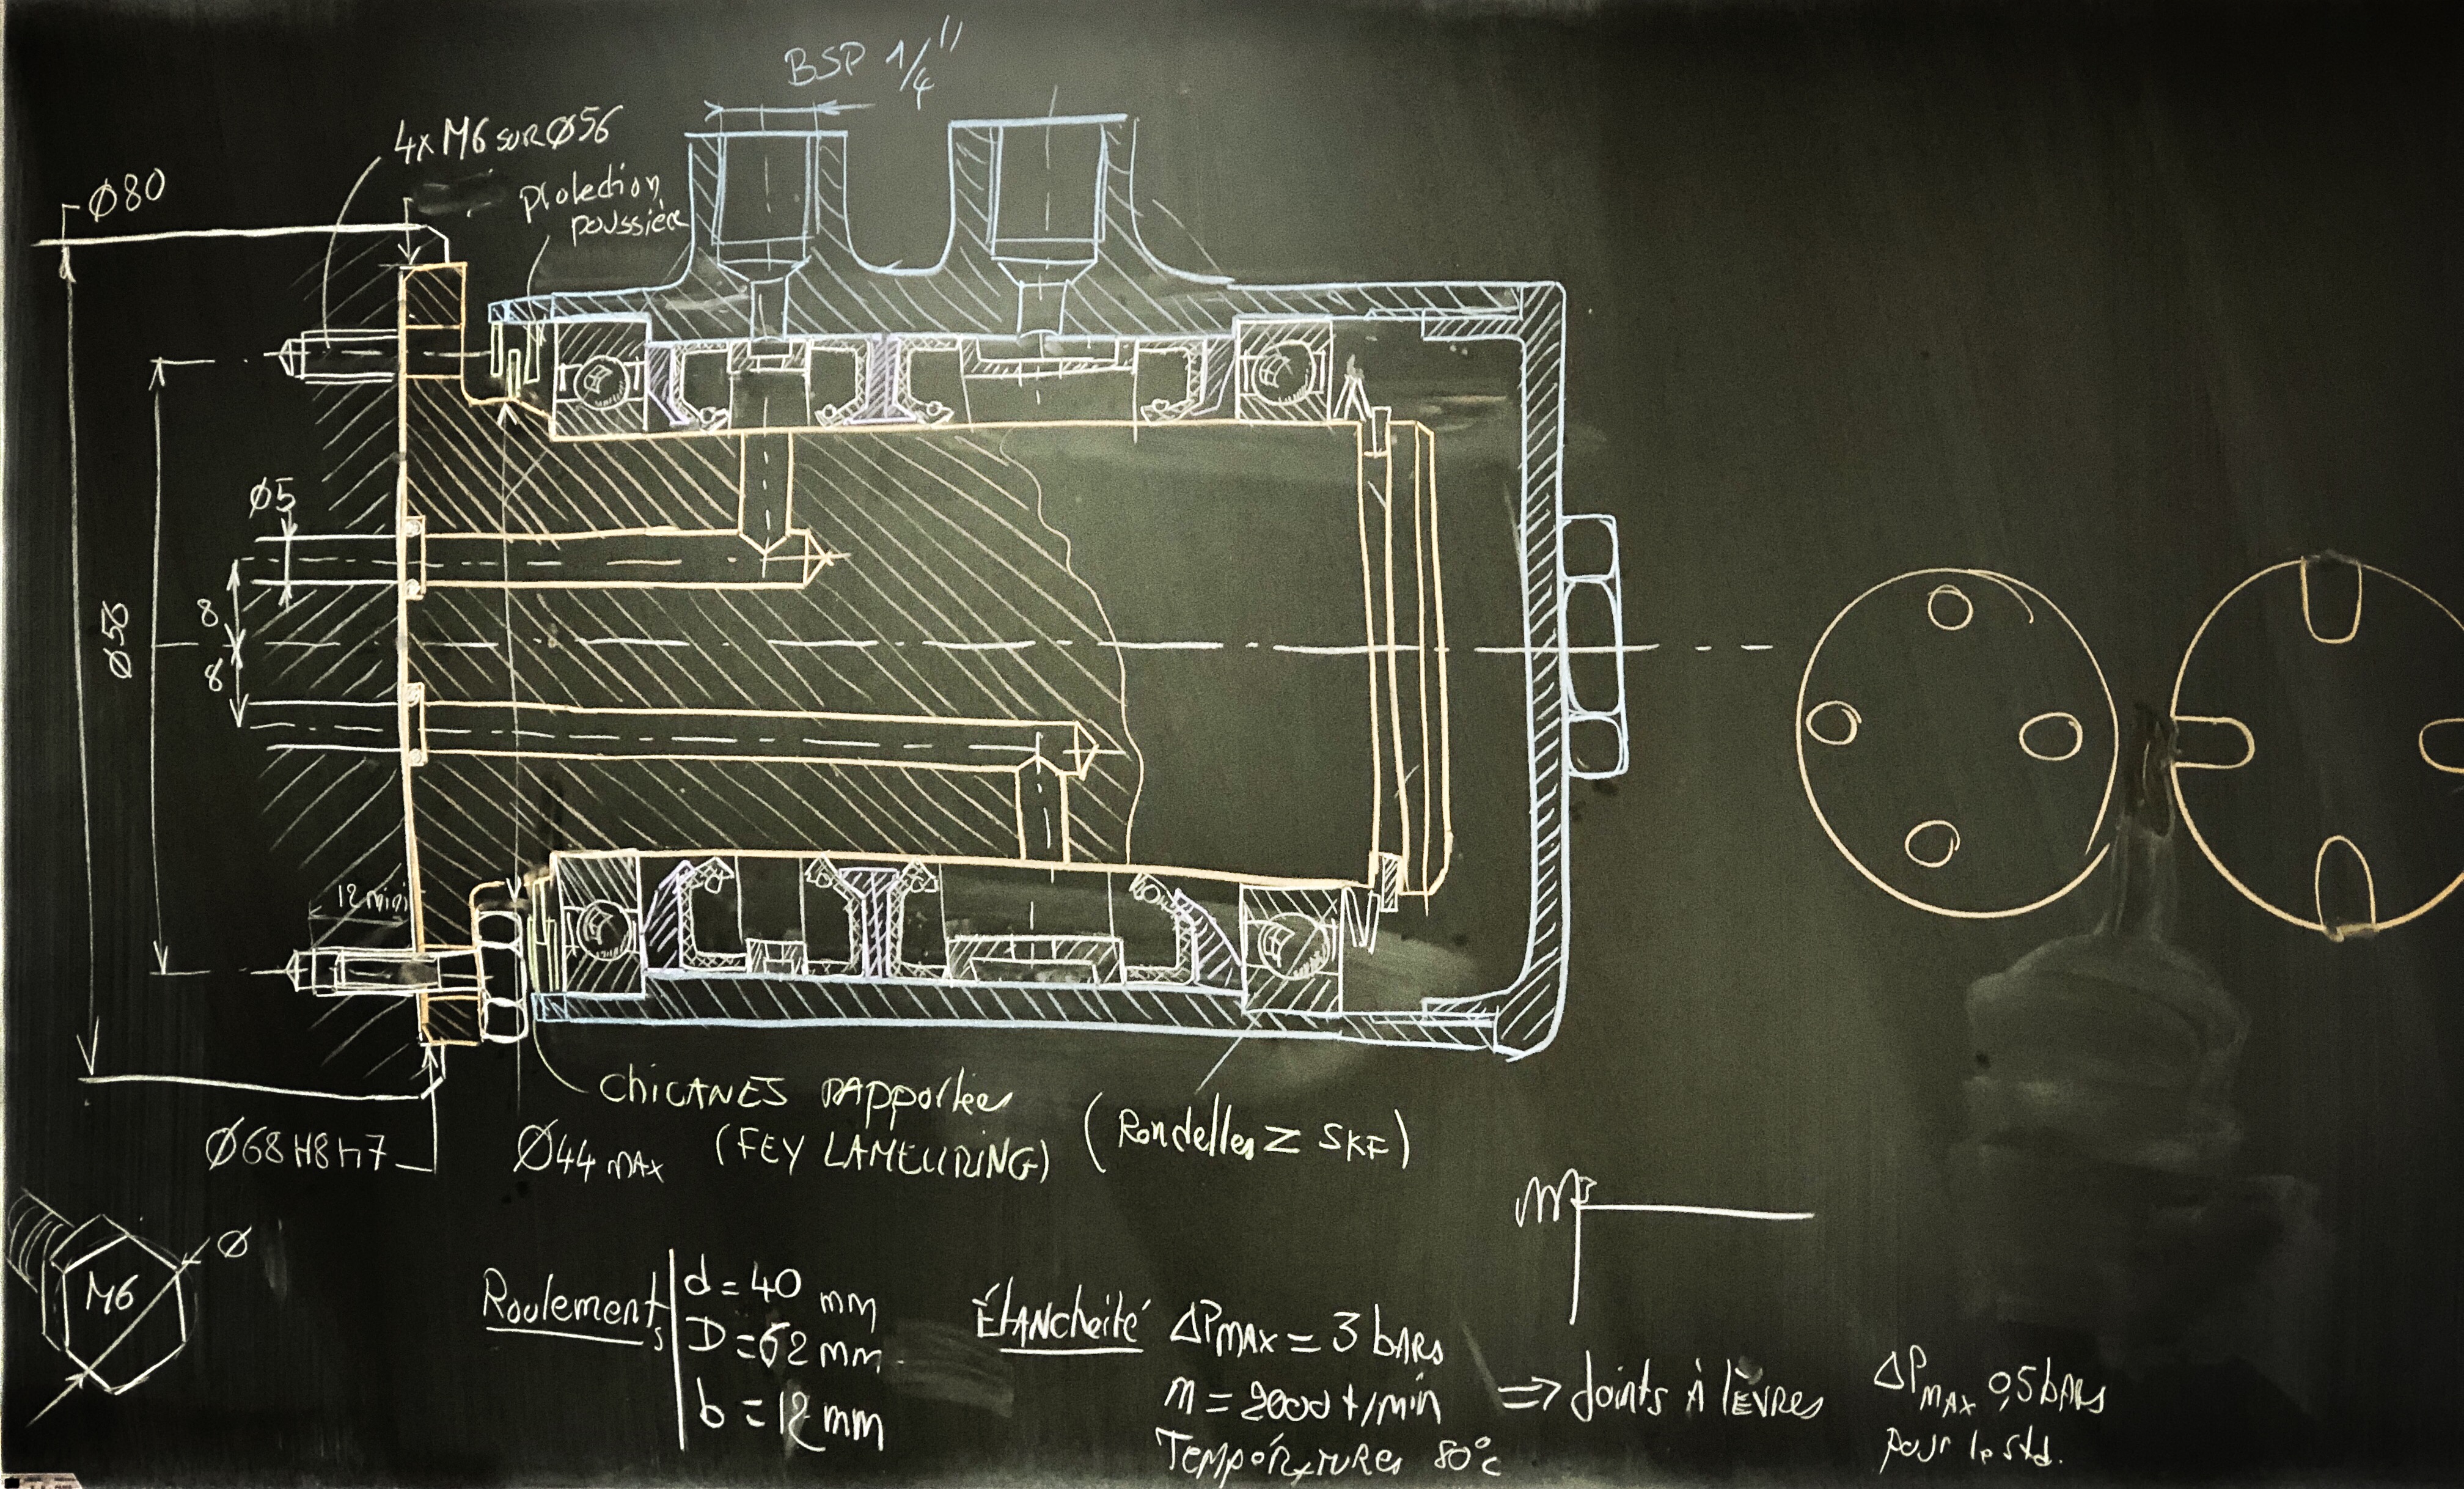 BSP 1/4"
4x M6 sur Ø56
Protection
poussière
Ø80
Ø5
8
8
Ø56
12 mini
Chicanes rapportées
(FEY LAMELLRING)
(Rondelles Z SKF)
Ø68 H8 h7
Ø44 max
M6
Ø
Roulements
d = 40 mm
D = 62 mm
b = 12 mm
Étanchéité ΔPmax = 3 bars
n = 2000 t/min
Températures 80°c
=> Joints à lèvres
ΔPmax 0,5 bars
pour le std.